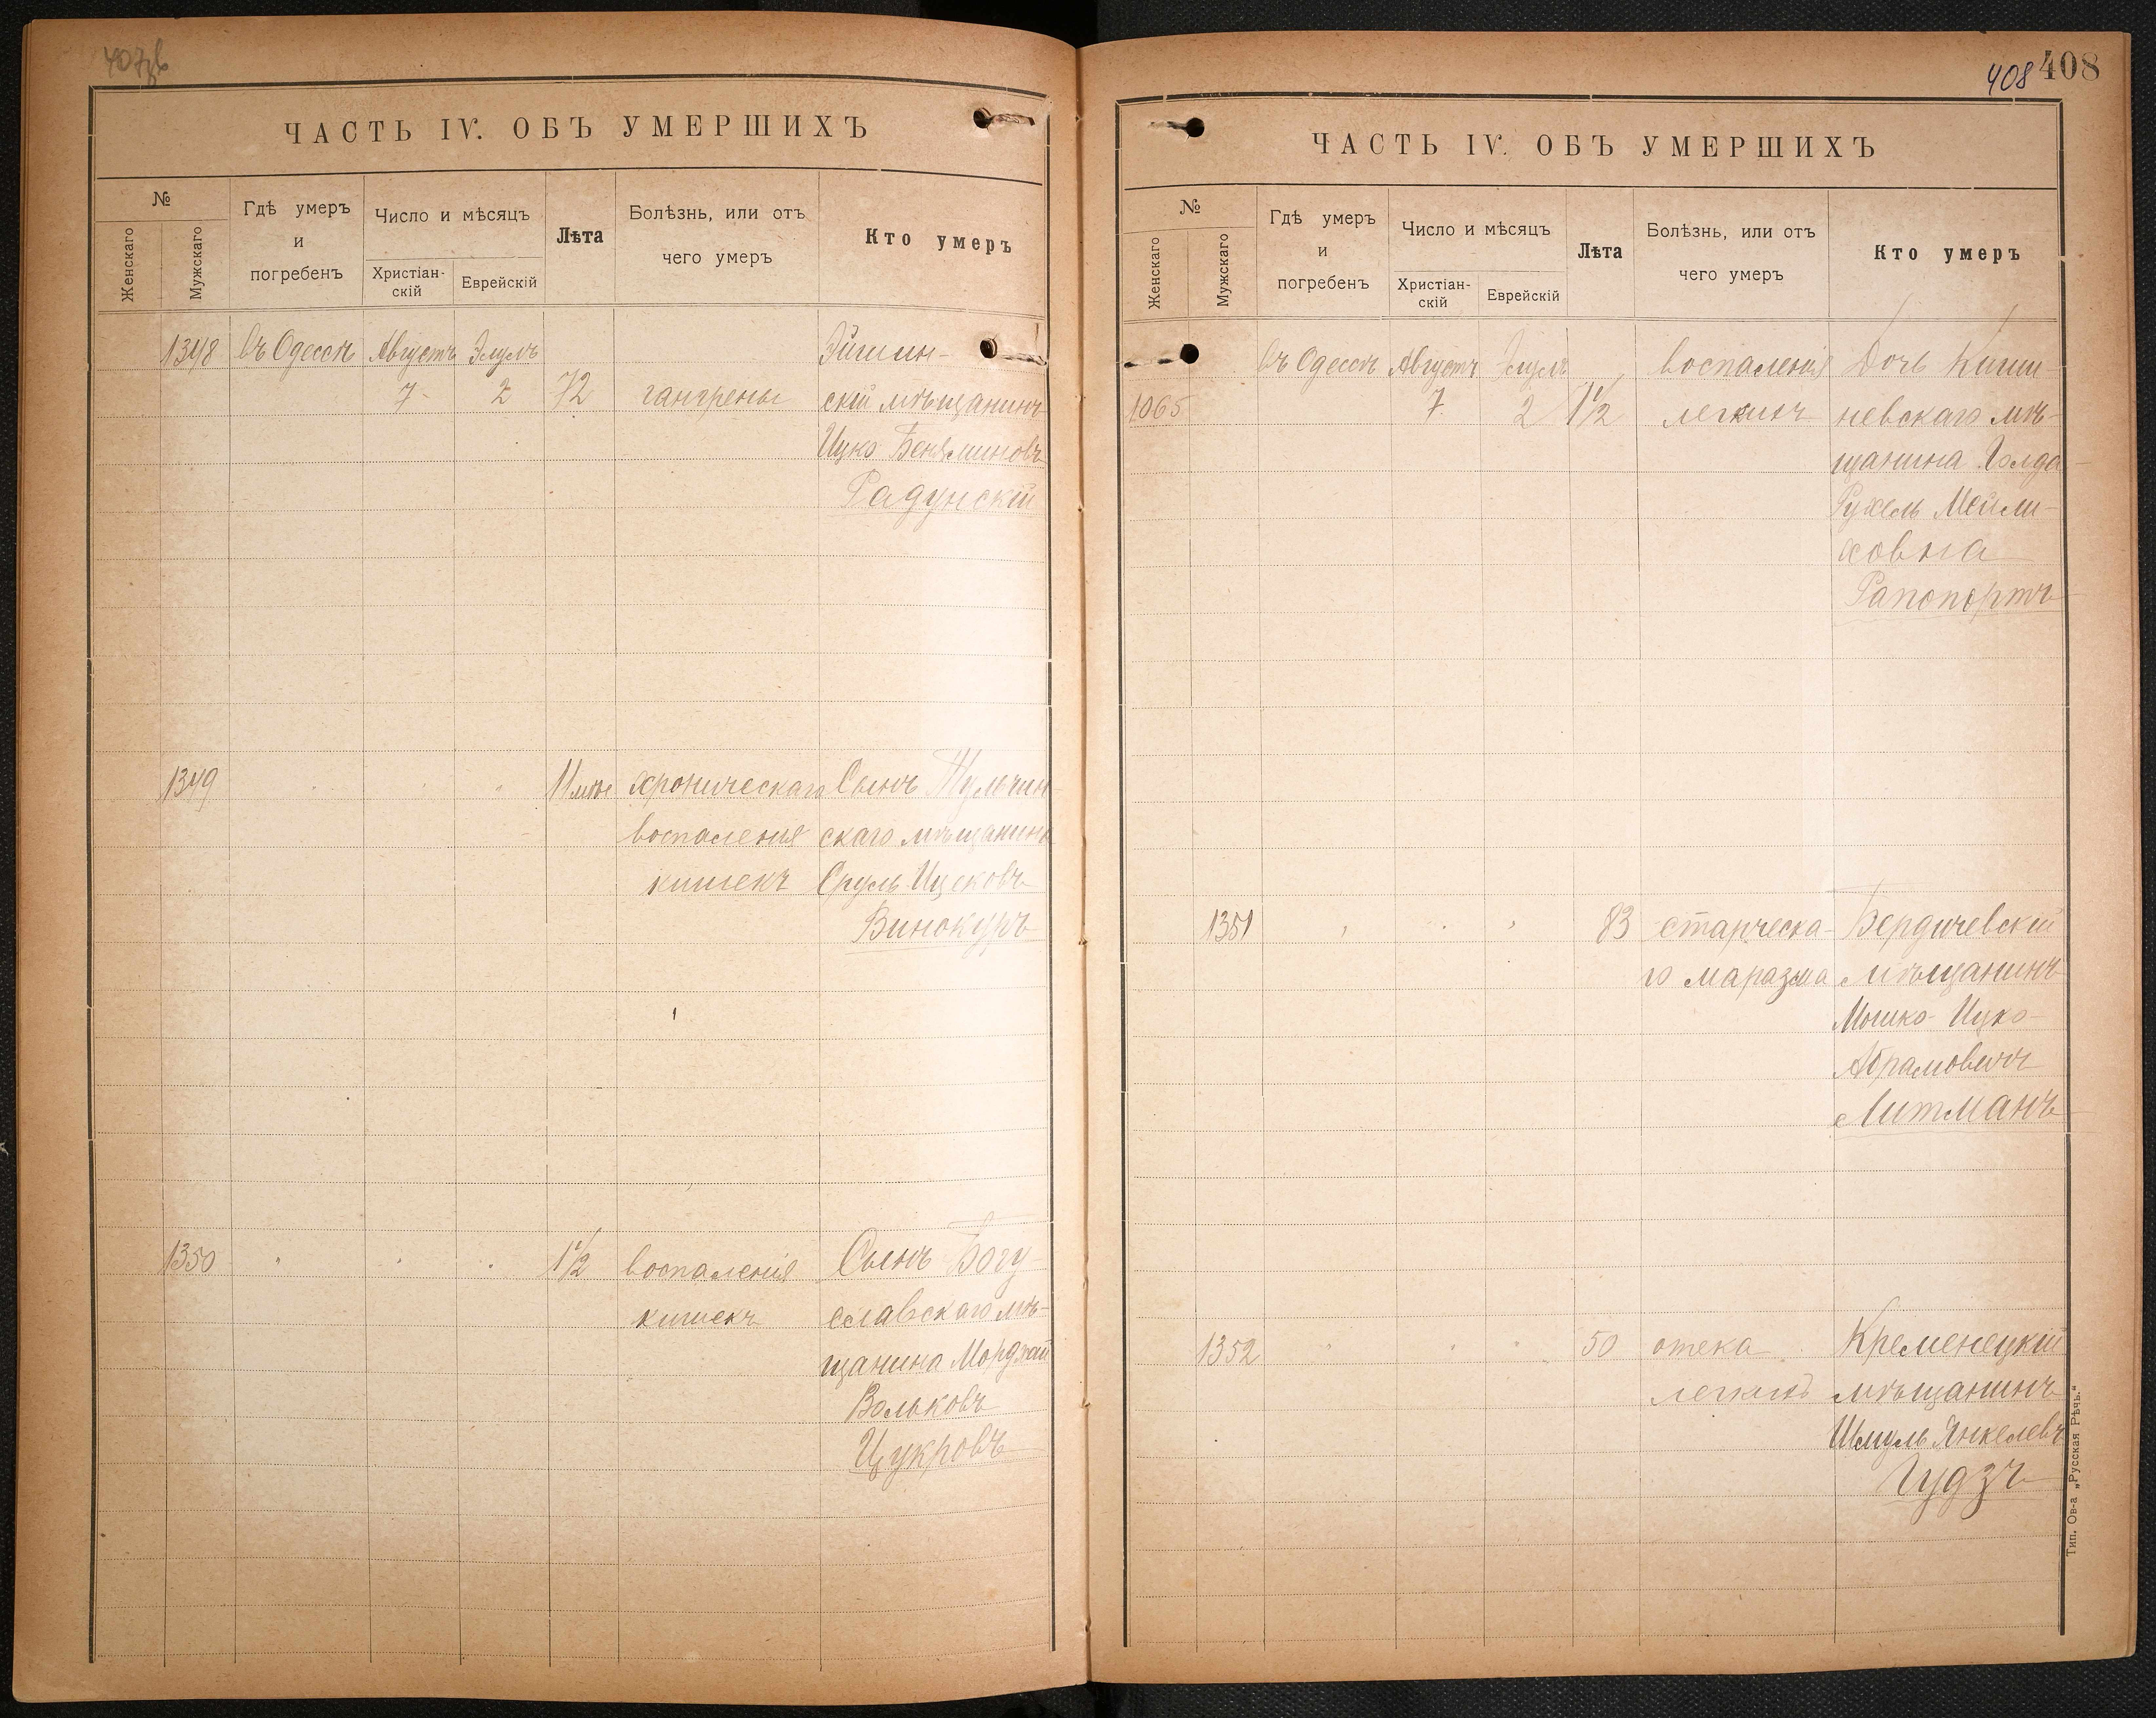 407об
ЧАСТЬ IV. ОБЪ УМЕРШИХЪ
№
Женскаго
Мужскаго
Гдѣ умеръ
и
погребенъ
Число и мѣсяцъ
Христіан-
скій
Еврейскій
Лѣта
Болѣзнь, или отъ
чего умеръ
Кто умеръ
1348 въ Одессѣ Августъ Элулъ
7 2 72 гангрены скій мѣщанинъ
Ицко Беняминовъ
Радунскій
1349 11 мѣс хроническаго Сынъ Тульчин-
воспаленія скаго мѣщанина
кишекъ Сруль Ицековъ
Винокуръ
1350 1 1/2 воспаленія Сынъ Богу-
кишекъ славскаго мѣ-
щанина Мордхай
Вольковъ
Цукровъ
408 408
ЧАСТЬ IV. ОБЪ УМЕРШИХЪ
№
Женскаго
Мужскаго
Гдѣ умеръ
и
погребенъ
Число и мѣсяцъ
Христіан-
скій
Еврейскій
Лѣта
Болѣзнь, или отъ
чего умеръ
Кто умеръ
въ Одессѣ Августъ Элулъ воспаленія Дочь Киши-
1065 7 2 1 1/2 легкихъ невскаго мѣ-
щанина Голда
Рухель Мейли-
ховна
Рапопортъ
1351 83 старческа- Бердичевскій
го маразма мѣщанинъ
Мошко Ицко-
Абрамовичъ
Литманъ
1352 50 отека Кременецкій
легкихъ мѣщанинъ
Шмуль Янкелевъ
Гудзъ
Тип. Ов-а „Русская Рѣчь."